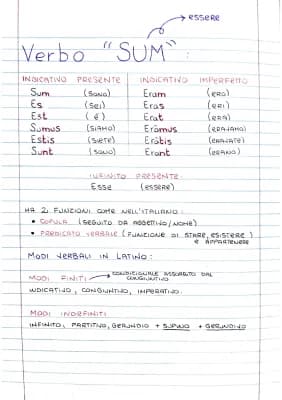 essere
Verbo "SUM":
INDICATIVO PRESENTE INDICATIVO IMPERFETTO
Sum (SONO) Eram (ERO)
Es (SEI) Eras (ERI)
Est (È) Erat (ERA)
Sumus (SIAMO) Eràmus (ERAVAMO)
Estis (SIETE) Eràtis (ERAVATE)
Sunt (SONO) Erant (ERANO)
INFINITO PRESENTE
Esse (ESSERE)
HA 2 FUNZIONI COME NELL'ITALIANO:
• COPULA (SEGUITO DA AGGETTIVO/NOME)
• PREDICATO VERBALE (FUNZIONE DI STARE, ESISTERE)
E APPARTENERE
MODI VERBALI IN LATINO:
MODI FINITI CONDIZIONALE ASSORBITO DAL CONGIUNTIVO
INDICATIVO, CONGIUNTIVO, IMPERATIVO.
MODI INDEFINITI
INFINITO, PARTITIVO, GERUNDIO + SUPINO + GERUNDIVO